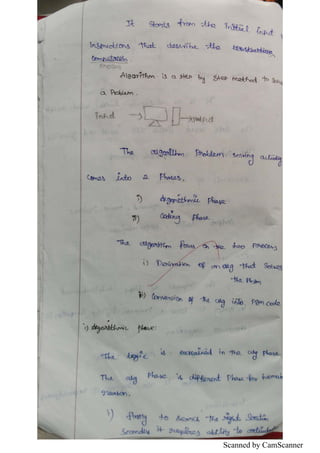 It starts from the initial input
Instructions that describe the
computation
Algorithm is a step by step method to
a Problem.
Input
The algorithm Problem solving activity
comes into 2 Phases.
i) algorithmic Phase
ii) Coding Phase
The algorithm focus on the two Process
i) Derivation of an alg that solves
the Pbm
ii) Conversion of the alg into Pgm code
i) algorithmic phase:
The logic is in the alg Phase
The alg Phase is different Phase for
reason.
i) to search the right
Secondly it requires ability to
Scanned by CamScanner